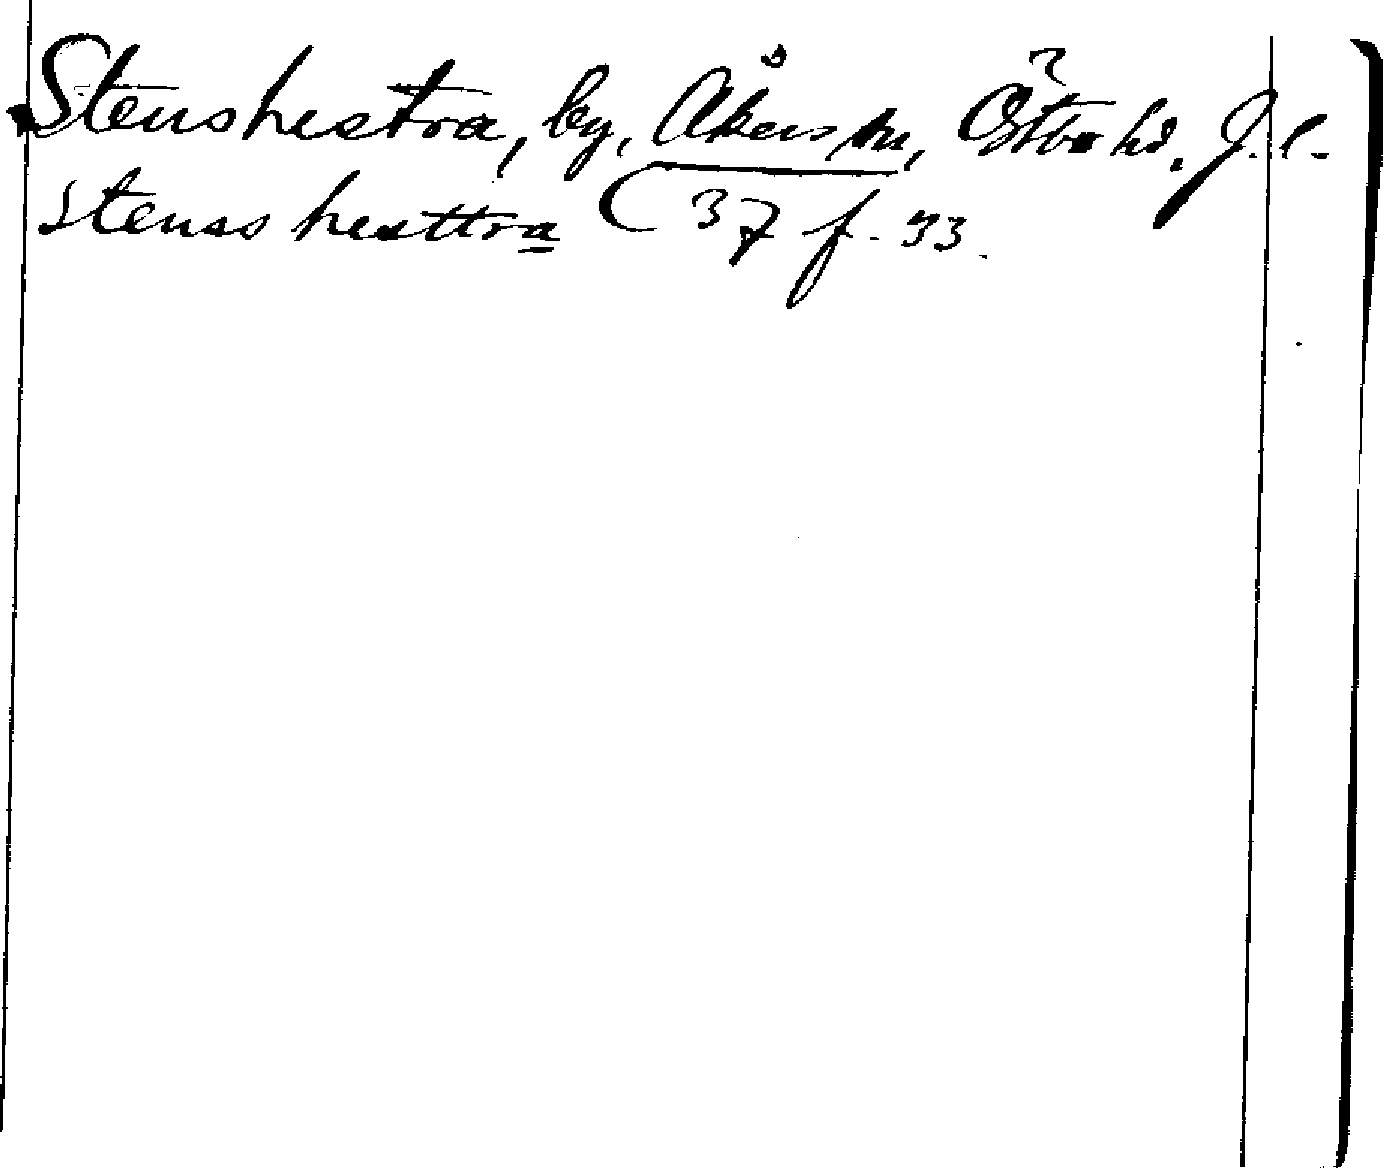 Stenshestra, by, Åkers sn, Östbo hd. J. l.
stenss hesttra (37 f. 33.